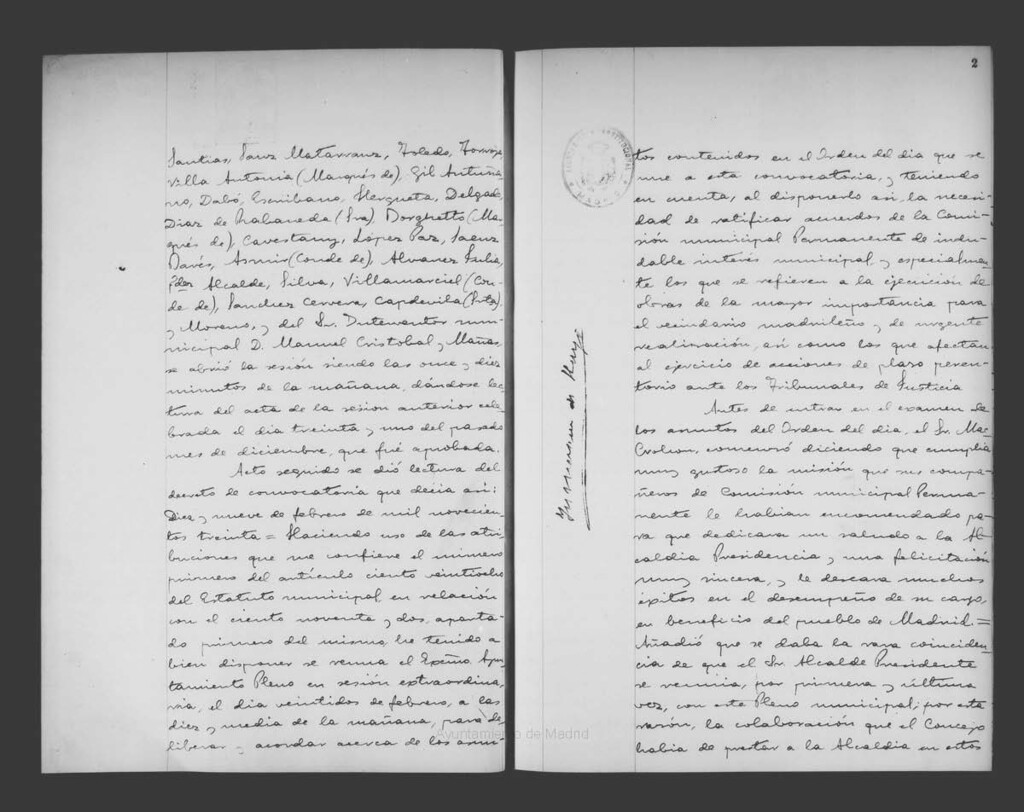 Santias, Sanz Matarranz, Toledo,
Villa Antonia (Marqués de), Gil Antuña-
no, Dabó, Escribano, Hergueta, Delgado,
Diaz de Rabaneda (Sra), Borghetto (Mar-
qués de), Cavestany, López Paz, Saenz
Asmir (Conde de), Alvarez
Alcalde, Silva, Villamarciel (Con-
de de), Sanchez Cervera, Capdevila (Srta)
y Moreno, y del Sr. Interventor mu-
nicipal D. Manuel Cristobal y Mañas,
se abrió la sesión siendo las once y diez
minutos de la mañana, dándose lec-
tura del acta de la sesion anterior cele-
brada el dia treinta y uno del pasado
mes de diciembre, que fué aprobada.
Acto seguido se dió lectura del
decreto de convocatoria que decia asi:
Diez y nueve de febrero de mil novecien-
tos treinta = Haciendo uso de las atri-
buciones que me confiere el número
primero del articulo ciento veintiocho
del Estatuto municipal en relación
con el ciento noventa y dos, aparta-
do primero del mismo, he tenido a
bien disponer se reuna el Excmo. Ayun-
tamiento Pleno en sesión extraordina-
ria, el dia veintidos de febrero, a las
diez y media de la mañana, para de-
liberar y acordar acerca de los asun-
Ayuntamiento de Madrid
2
tos contenidos en el Orden del dia que se
une a esta convocatoria, y teniendo
en cuenta, al disponerlo asi, la necesi-
dad de ratificar acuerdos de la Comi-
sión municipal Permanente de indu-
dable interés municipal, y especialmen-
te los que se refieren a la ejecución de
obras de la mayor importancia para
el vecindario madrileño y de urgente
realización, asi como los que afectan
al ejercicio de acciones de plazo peren-
torio ante los Tribunales de Justicia
Antes de entrar en el examen de
los asuntos del Orden del dia, el Sr. Mac-
Crohon, comenzó diciendo que cumplia
muy gustoso la misión que sus compa-
ñeros de Comisión municipal Perma-
nente le habian encomendado pa-
ra que dedicara un saludo a la Al-
caldia Presidencia y una felicitación
muy sincera, y le deseara muchos
éxitos en el desempeño de su cargo,
en beneficio del pueblo de Madrid. =
Añadió que se daba la rara coinciden-
cia de que el Sr. Alcalde Presidente
se reunia, por primera y última
vez, con este Pleno municipal; por esta
razón, la colaboración que el Concejo
habia de prestar a la Alcaldia en estos